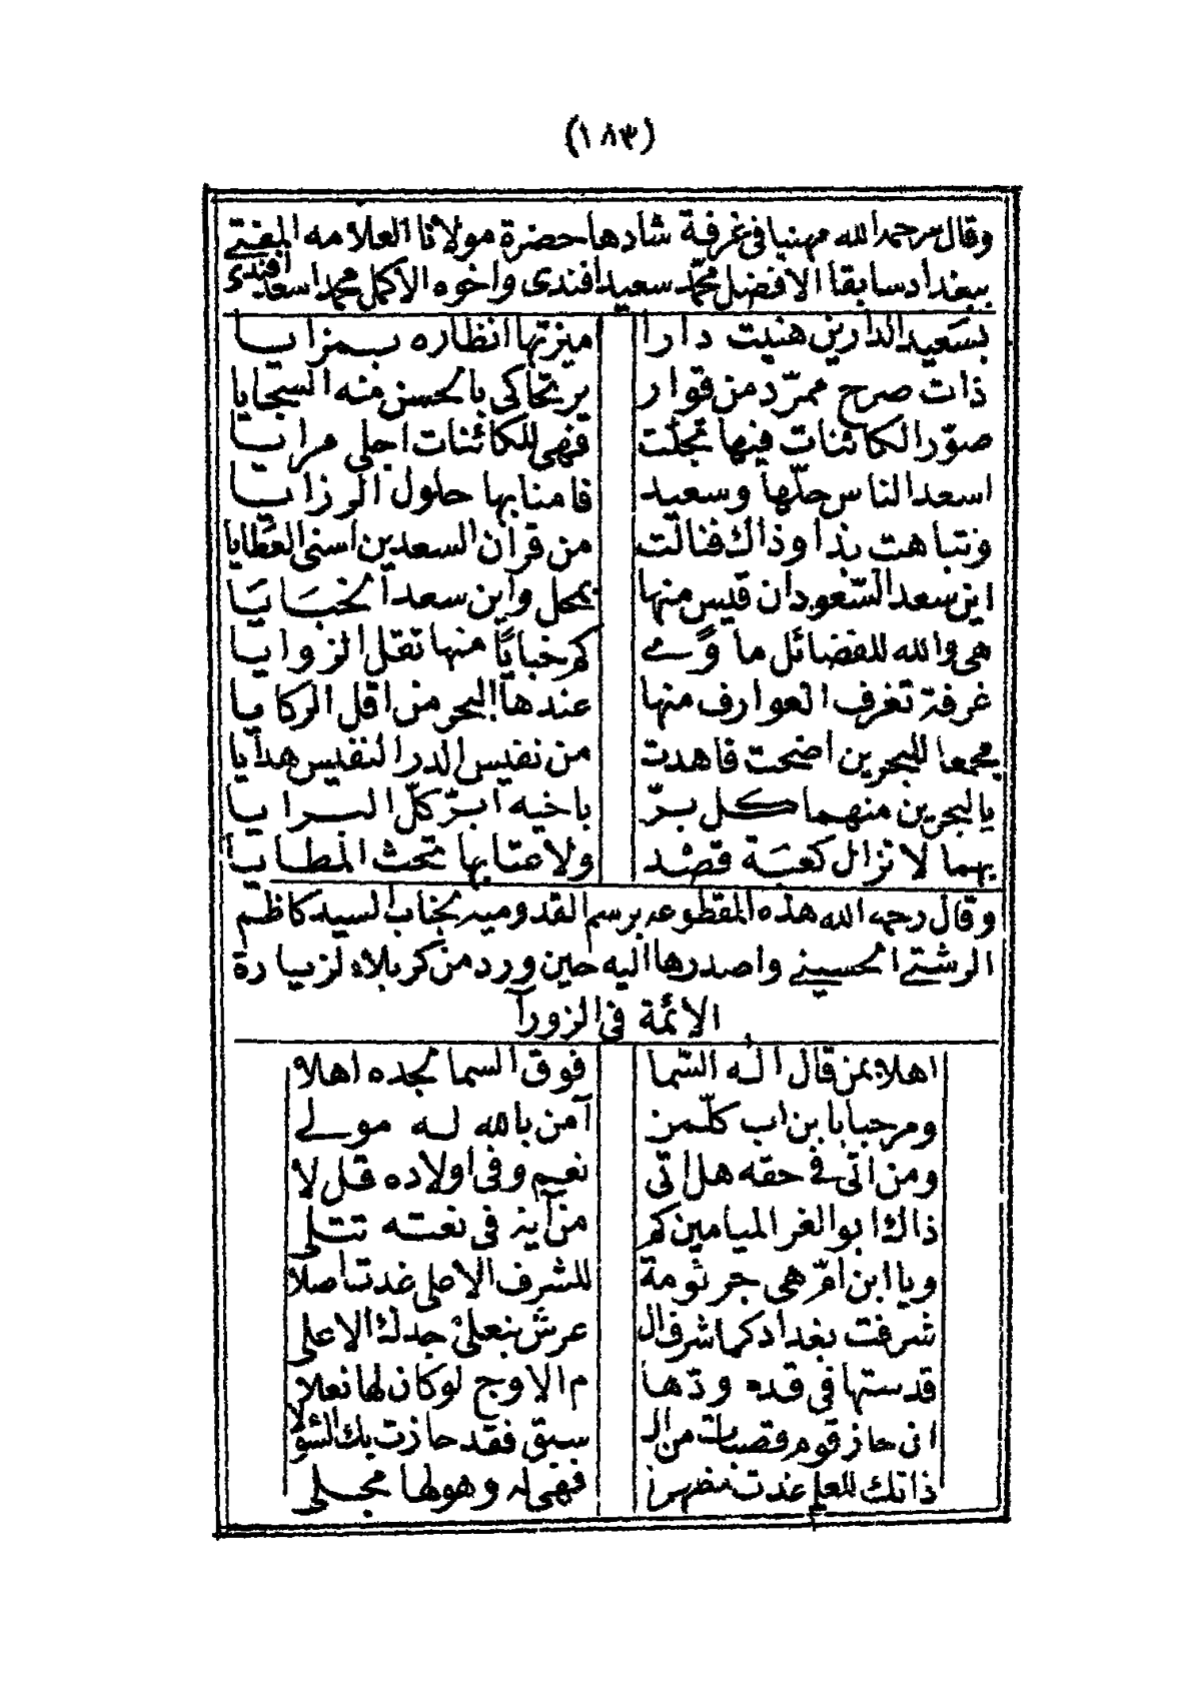 (١٨٣)
وقال مرحمه الله مهنيا في غرفة شادها حضرة مولانا العلامه المفتي
ببغداد سابقا الافضل محمّد سعيد افندى واخوه الاكمل محمد اسعد افندى
بسَعيد الدارين هنيت دارا ميزتها انظاره بمزايا
ذات صرح ممرّد من قوار ير تحاكى بالحسن منه السجايا
صوّر الكائنات فيها تجلّت فهى للكائنات اجلى مرايا
اسعد الناس حلّها وسعيد فامنا بها حلول الرزايا
وتباهت بذا وذاك فنالت من قران السعدين اسنى العَطايا
اين سعد السّعود ان قيس منها بمحل واين سعد الخبَايَا
هى والله للفضائل ماوًى كم خبايًا منها تقل الزوايا
غرفة تغرف العوارف منها عندها البحر من اقل الركايا
مجمعا للبحرين اضحت فاهدت من نفيس الدر النفيس هدايا
يالبحرين منهما كل برّ باخيه ابرّ كلّ البرايا
بهما لا تزال كعبَة قصْد ولاعتابها تحث المطايا
وقال رحمه الله هذه المقطوعه برسم القدوميه لجناب السيد كاظم
الرشتي الحسيني واصدرها اليه حين ورد من كربلاء لزيارة
الائمة في الزورآ
اهلا بمن قال اله السّما فوق السما لجده اهلا
ومرحبا يا بن اب كلّ من آمن بالله له مولى
ومن اتى في حقه هل اتى نعم وفى اولاده قل لا
ذاك ابو الغر الميامين كم من آية فى نعته تتلى
ويا ابن امّ هى جرثومة للشرف الاعلى غدت اصلا
شرفت بغداد كما شرف ال عرش بنعلى جدك الاعلى
قدستها في قدم ودّها م الاوج لو كان لها نعلا
ان حاز قوم قصبات من ال سبق فقد حازت بك
ذاتك للعلم غدت فهى له وهو لها مجلى